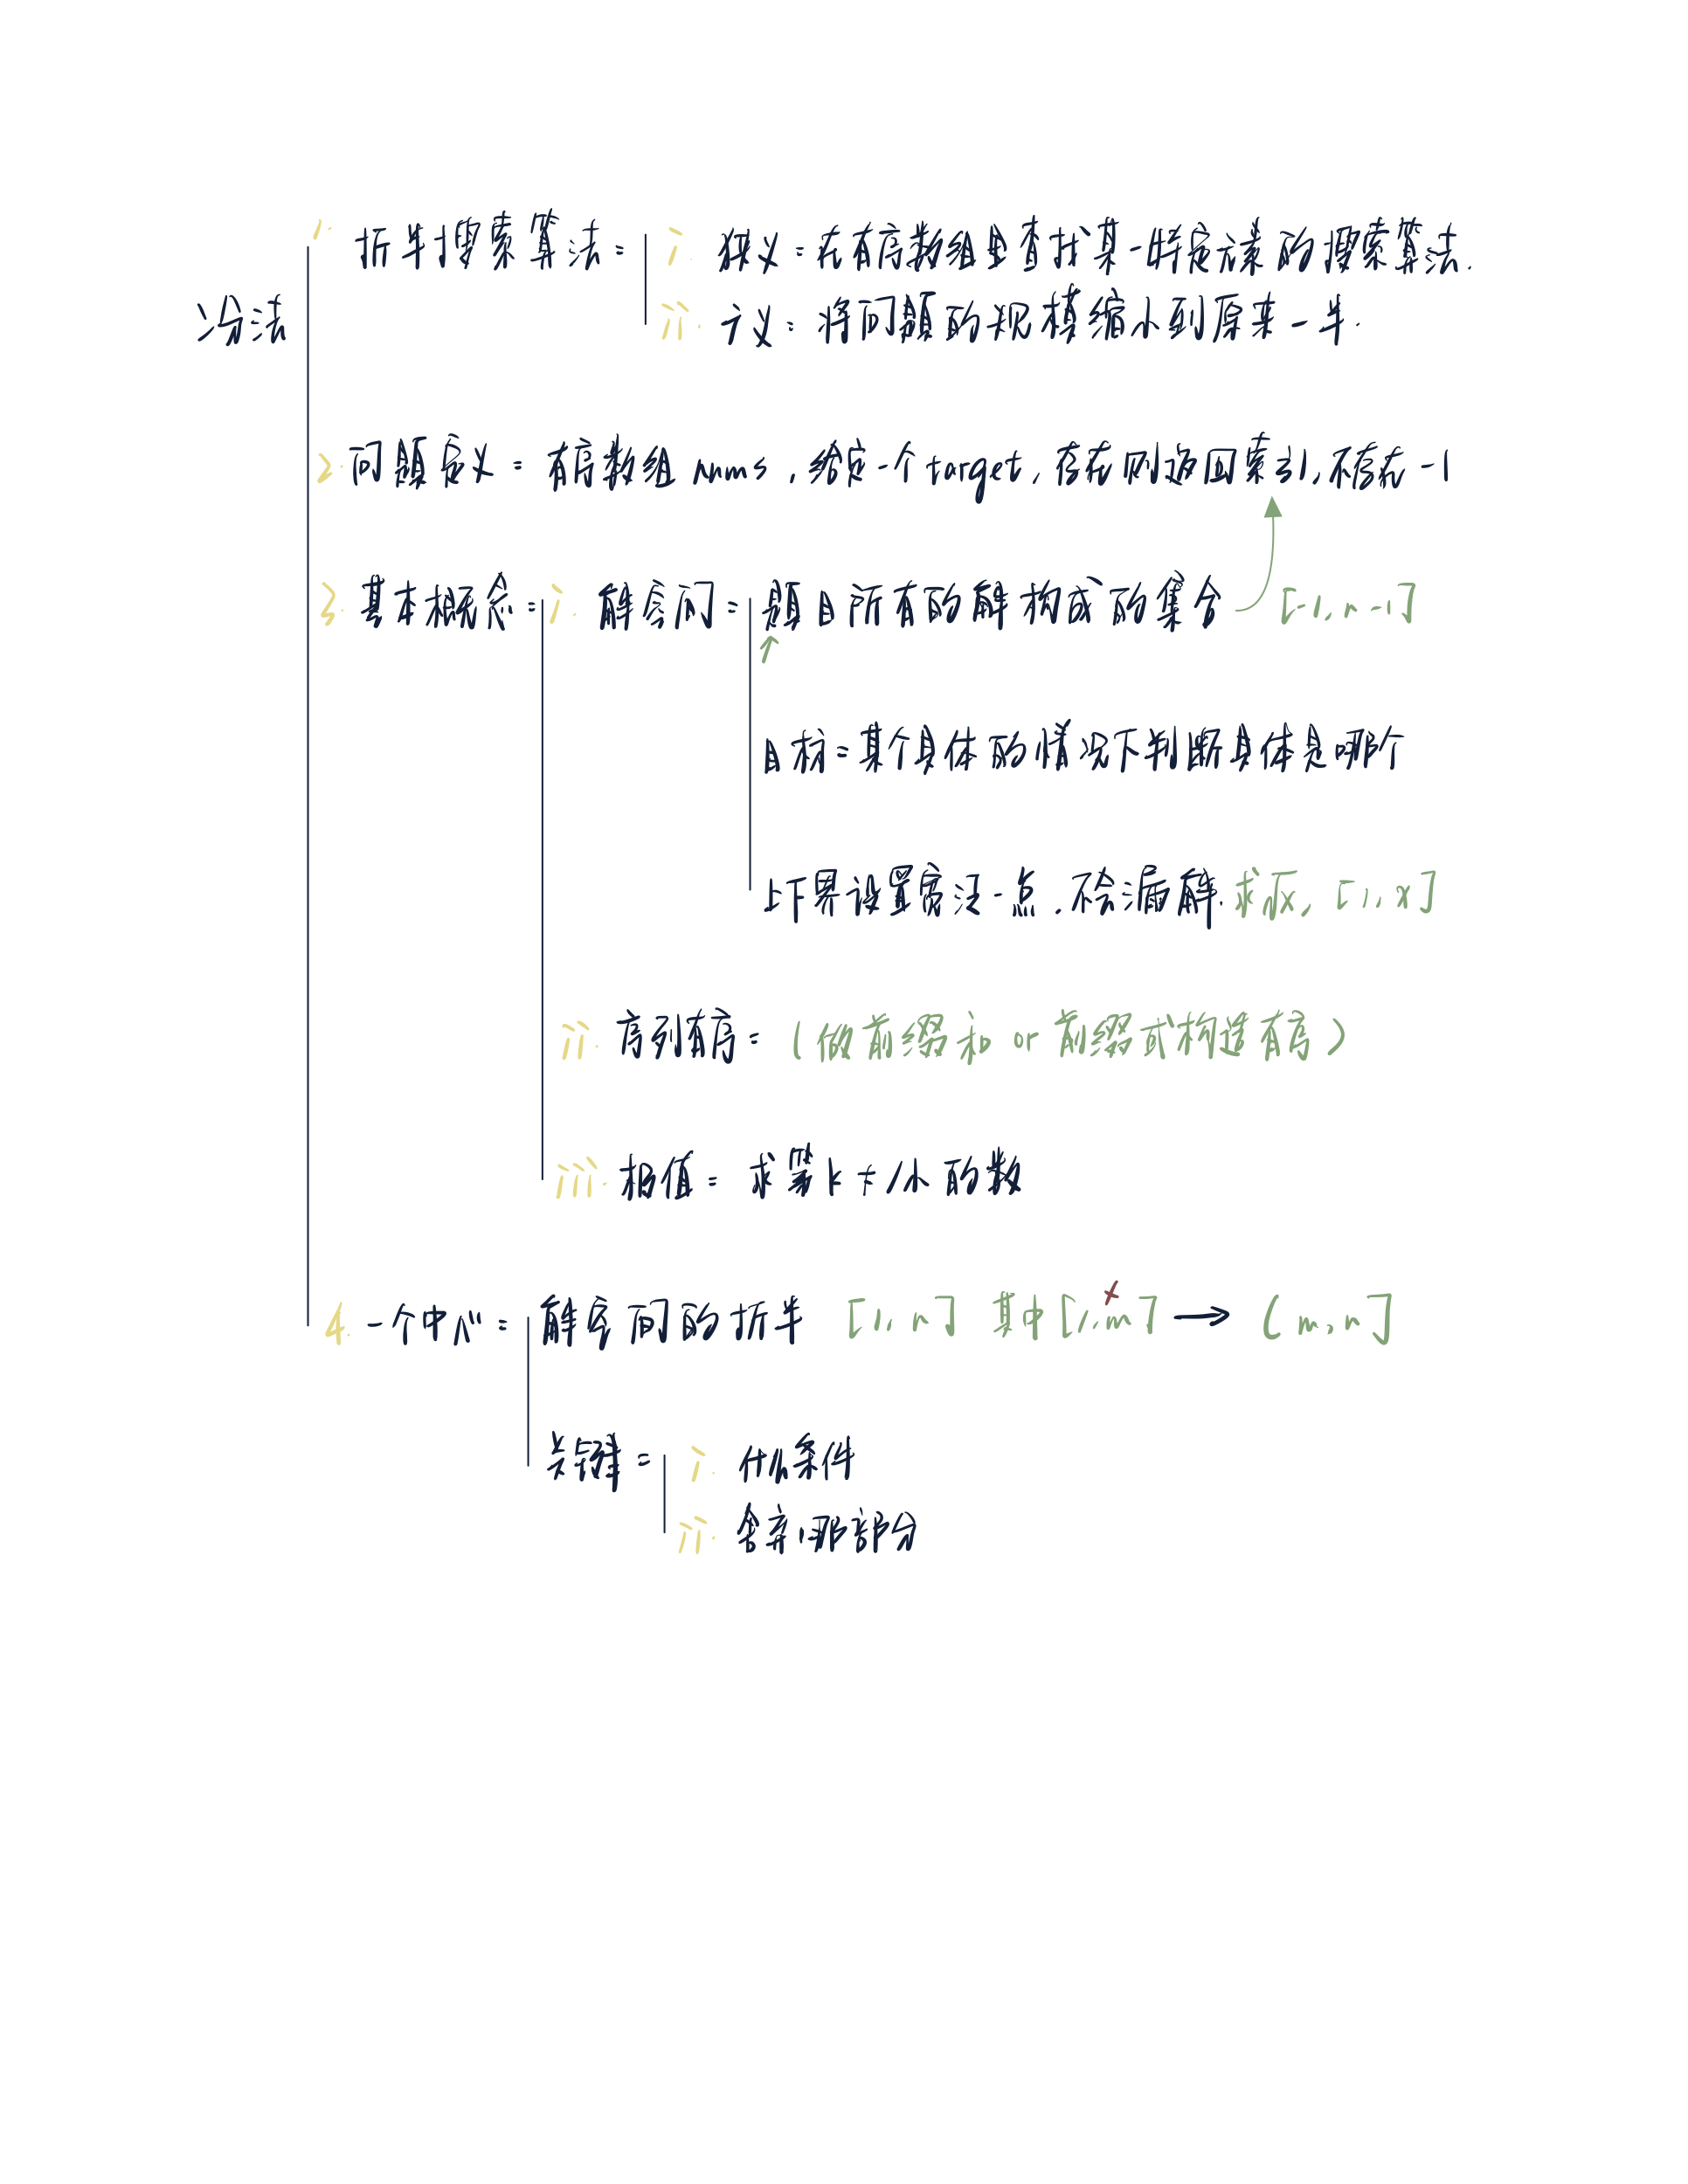 1. 折半搜索算法: i. 狭义:在有序数组里查找某一特定元素的搜索算法.
二分法
ii. 广义:将问题的规模缩小到原来一半.
2. 问题定义: 有序数组 nums,给定一个target,存在则返回索引,不存在-1
3. 基本概念: i. 解空间: 题目所有的解构成的集合 [-1, n-1]
目标:某个具体的情况下判断具体是哪个
上下界设置宽泛一点,不会漏解. 求√x, [1, x]
ii. 序列有序: (做前缀和 or 前缀式构造有序)
iii. 极值: 求第k大/小的数
4. 一个中心: 解空间的折半 [1, n] 其中[1, m] x → (m, n]
关键: i. 什么条件
ii. 舍弃哪部分